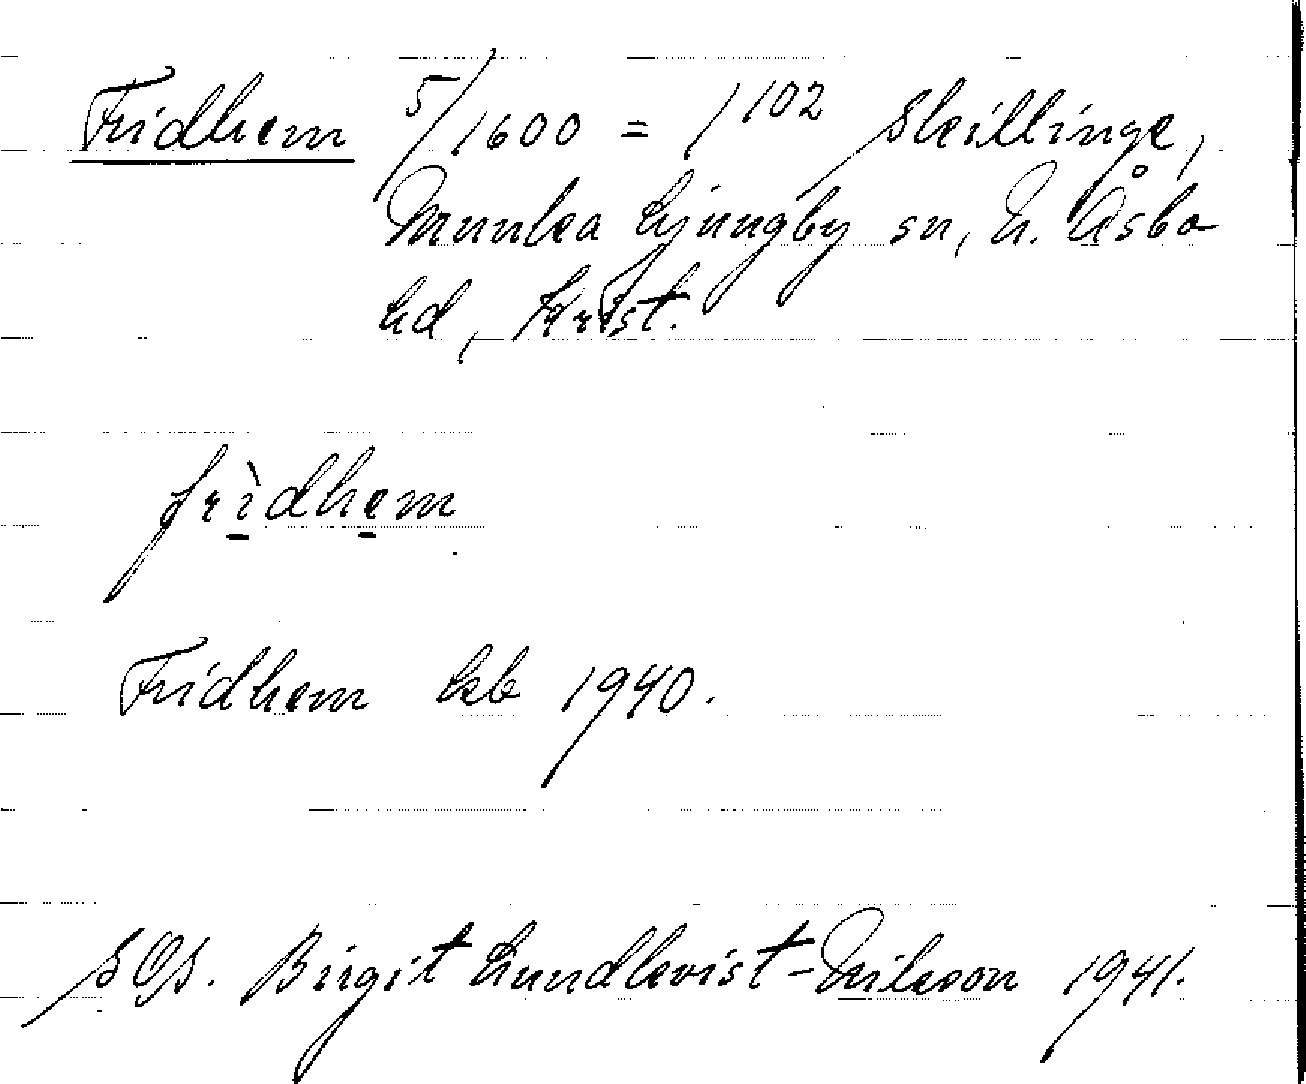 Fridhem 5/1600 = 1¹⁰² Skillinge,
Munka Ljungby sn, N. Åsbo
hd, Krist.
frìdhem
Fridhem ksb 1940.
SOS. Birgit Lundkvist-Nilsson 1941.